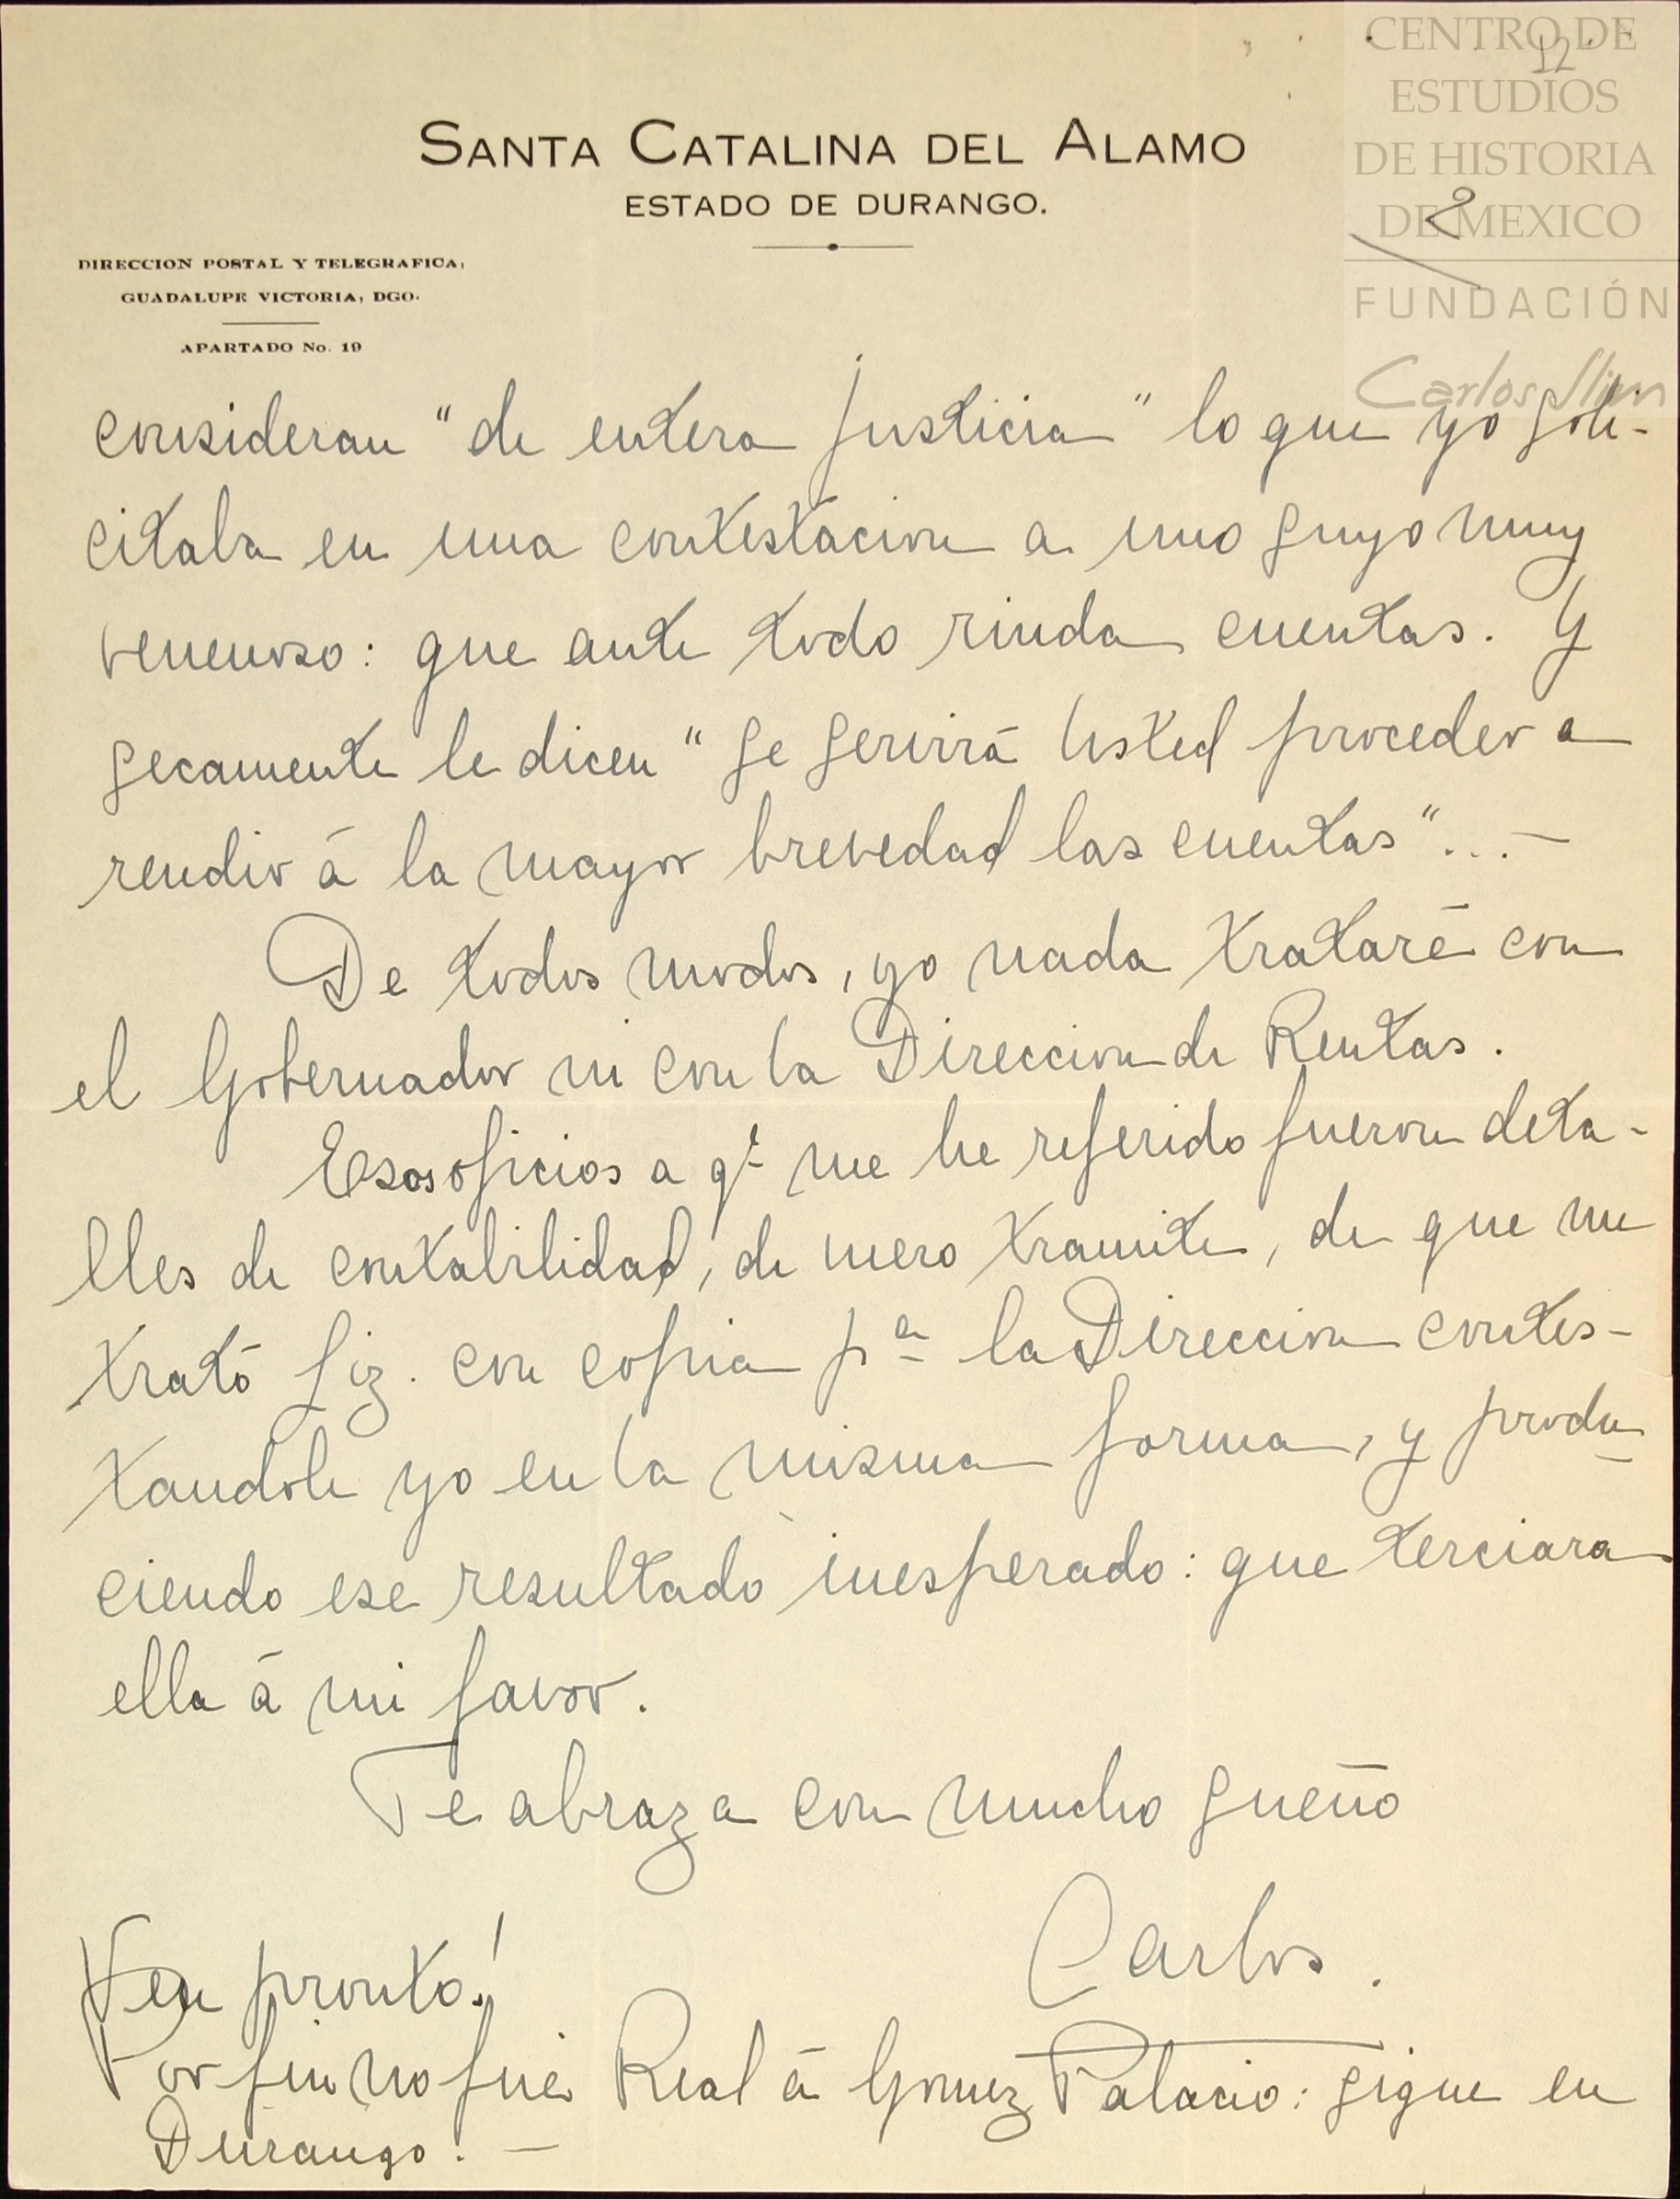 CENTRO DE
12
ESTUDIOS
DE HISTORIA
DE MEXICO
2
FUNDACIÓN
Carlos Slim
SANTA CATALINA DEL ALAMO
ESTADO DE DURANGO.
DIRECCION POSTAL Y TELEGRAFICA,
GUADALUPE VICTORIA, DGO.
APARTADO No. 19
consideran "de entera justicia" lo que yo soli-
citaba en una contestacion a uno suyo muy
venenoso: que ante todo rinda cuentas. Y
secamente le dicen "se servirá Usted proceder a
rendir á la mayor brevedad las cuentas"... —
De todos modos, yo nada trataré con
el Gobernador ni con la Direccion de Rentas.
Esos oficios a qe me he referido fueron deta-
lles de contabilidad, de mero tramite, de que me
trató Liz. con copia pa la Direccion contes-
tandole yo en la misma forma, y produ-
ciendo ese resultado inesperado: que terciara
ella á mi favor.
Te abraza con mucho sueño
Carlos.
Ven pronto!
Por fin no fué Real á Gomez Palacio: sigue en
Durango. —